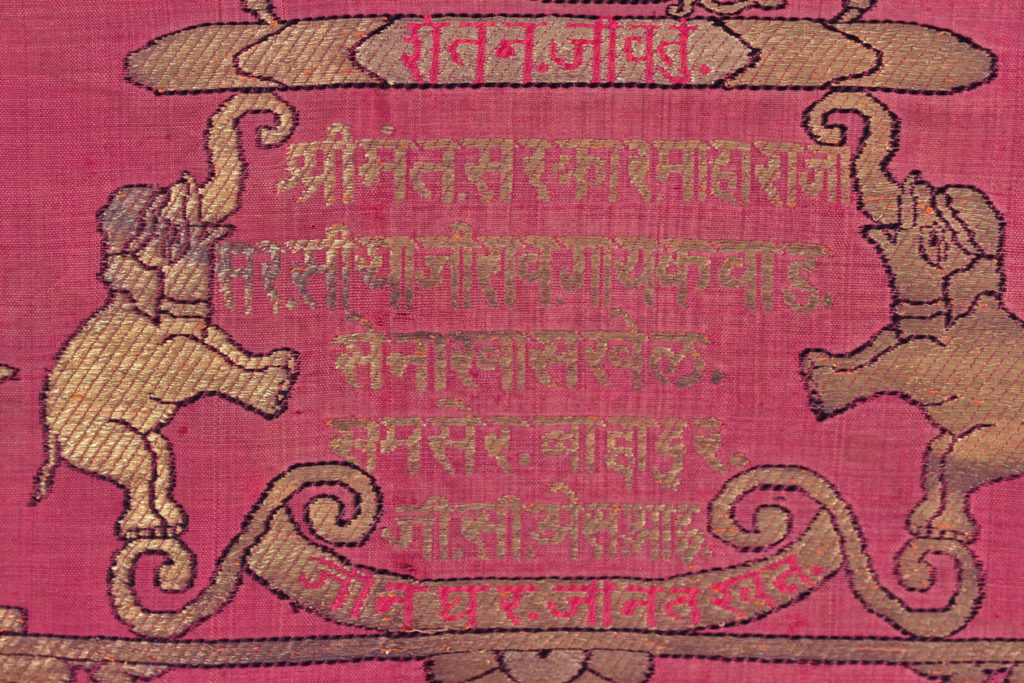 शतन.जीवतु.
श्रीमंत.सरकार.माहाराजा
सर.सीयाजीराव.गायकवाड.
सेनाखासखेल.
समसेर.बाहादुर.
जी.सी.अेस.आइ.
जीनघर.जीनतखत.